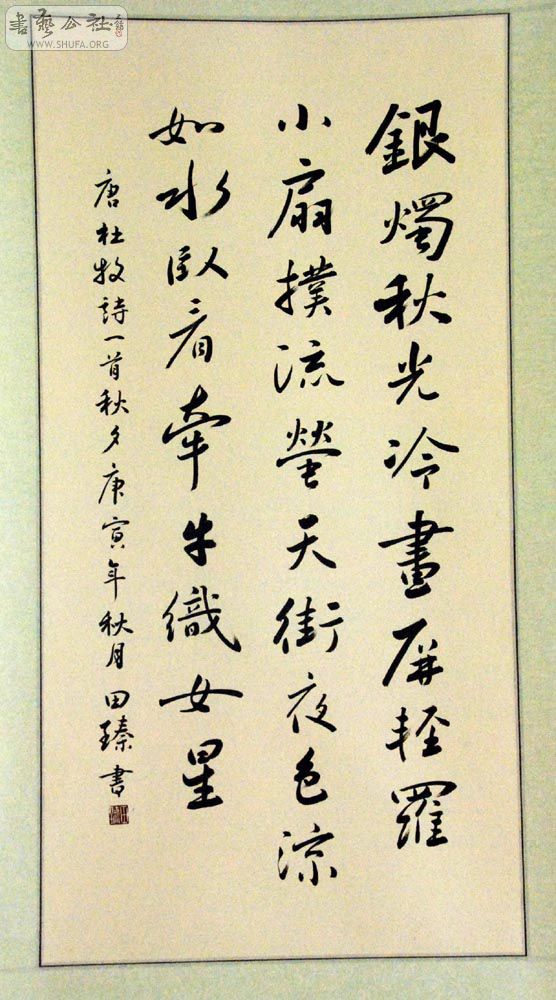 銀燭秋光冷畫屏輕羅
小扇撲流螢天街夜色涼
如水臥看牽牛織女星
唐杜牧詩一首秋夕庚寅年秋月田臻書
書藝公社
WWW.SHUFA.ORG